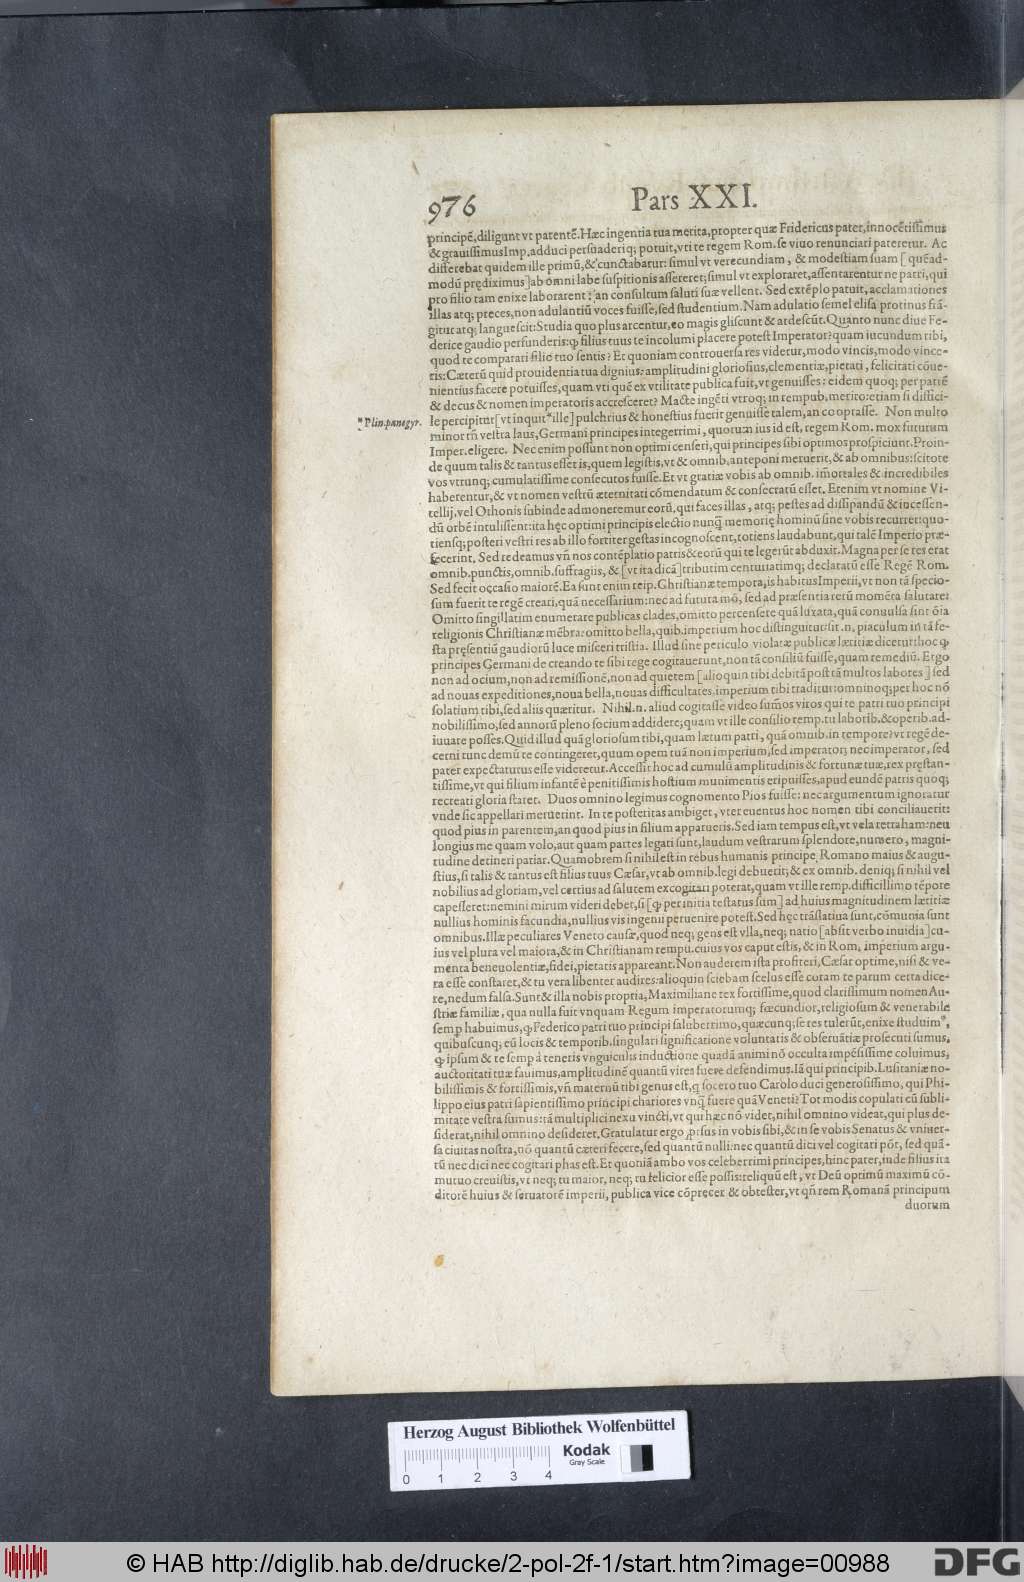 976 Pars XXI.
principē, diligunt vt parentē. Hæc ingentia tua merita, propter quæ Fridericus pater, innocētissimus
& grauissimus Imp. adduci persuaderiq; potuit, vti te regem Rom. se viuo renunciari pateretur. Ac
differebat quidem ille primū, & cunctabatur: simul vt verecundiam, & modestiam suam [quēad-
modū prędiximus] ab omni labe suspitionis assereret; simul vt exploraret, assentarentur ne patri, qui
pro filio tam enixe laborarent; an consultum saluti suæ vellent. Sed extēplo patuit, acclamationes
illas atq; preces, non adulantiū voces fuisse, sed studentium. Nam adulatio semel elisa protinus frā-
gitur atq; languescit: Studia quo plus arcentur, eo magis gliscunt & ardescūt. Quanto nunc diue Fe-
derice gaudio perfunderis: ꝙ filius tuus te incolumi placere potest Imperator? quam iucundum tibi,
quod te comparari filio tuo sentis? Et quoniam controuersa res videtur, modo vincis, modo vince-
ris: Cæterū quid prouidentia tua dignius: amplitudini gloriosius, clementiæ, pietati, felicitati cōue-
nientius facere potuisses, quam vti quē ex vtilitate publica fuit, vt genuisses: eidem quoq; per patrē
& decus & nomen imperatoris accresceret? Macte ingēti vtroq; in rempub. merito: etiam si diffici-
* Plin. panegyr.
le percipitur [vt inquit * ille] pulchrius & honestius fuerit genuisse talem, an cooptasse. Non multo
minor tn̄ vestra laus, Germani principes integerrimi, quorum ius id est, regem Rom. mox futurum
Imper. eligere. Nec enim possunt non optimi censeri, qui principes sibi optimos prospiciunt. Proin-
de quum talis & tantus esset is, quem legistis, vt & omnib. anteponi meruerit, & ab omnibus: scitote
vos vtrunq; cumulatissime consecutos fuisse. Et vt gratiæ vobis ab omnib. im̄ortales & incredibiles
haberentur, & vt nomen vestrū æternitati cōmendatum & consecratū esset. Etenim vt nomine Vi-
tellij, vel Othonis subinde admoneremur eorū, qui faces illas, atq; pestes ad dissipandū & incessen-
dū orbē intulissent: ita hęc optimi principis electio nunq̄ memorię hominū sine vobis recurret: quo-
tiensq; posteri vestri res ab illo fortiter gestas incognoscent, totiens laudabunt, qui talē Imperio præ-
fecerint. Sed redeamus vn̄ nos contēplatio patris & eorū qui te legerūt abduxit. Magna per se res erat
omnib. punctis, omnib. suffragiis, & [vt ita dicā] tributim centuriatimq; declaratū esse Regē Rom.
Sed fecit occasio maiorē. Ea sunt enim reip. Christianæ tempora, is habitus Imperii, vt non tā specio-
sum fuerit te regē creari, quā necessarium: nec ad futura mō, sed ad præsentia rerū momēta salutare:
Omitto singillatim enumerare publicas clades, omitto percensere quā luxata, quā conuulsa sint oīa
religionis Christianæ mēbra: omitto bella, quib. imperium hoc distinguitur: sit .n. piaculum in tā fe-
sta pręsentiū gaudiorū luce misceri tristia. Illud sine periculo violatæ publicæ lætitiæ dicetur: hoc ꝙ
principes Germani de creando te sibi rege cogitauerunt, non tā consiliū fuisse, quam remediū. Ergo
non ad ocium, non ad remissionē, non ad quietem [alioquin tibi debitā post tā multos labores] sed
ad nouas expeditiones, noua bella, nouas difficultates, imperium tibi traditur: omninoq; per hoc nō
solatium tibi, sed aliis quæritur. Nihil .n. aliud cogitasse video sum̄os viros qui te patri tuo principi
nobilissimo, sed annorū pleno socium addidere; quam vt ille consilio remp. tu laborib. & operib. ad-
iuuare posses. Quid illud quā gloriosum tibi, quam lætum patri, quā omnib. in tempore? vt regē de-
cerni tunc demū te contingeret, quum opem tuā non imperium, sed imperator, nec imperator, sed
pater expectaturus esse videretur. Accessit hoc ad cumulū amplitudinis & fortunæ tuæ, rex pręstan-
tissime, vt qui filium infantē è penitissimis hostium munimentis eripuisses, apud eundē patris quoq;
recreati gloria staret. Duos omnino legimus cognomento Pios fuisse: nec argumentum ignoratur
vnde sic appellari meruerint. In te posteritas ambiget, vter euentus hoc nomen tibi conciliauerit:
quod pius in parentem, an quod pius in filium apparueris. Sed iam tempus est, vt vela retraham: neu
longius me quam volo, aut quam partes legati sunt, laudum vestrarum splendore, numero, magni-
tudine detineri patiar. Quamobrem si nihil est in rebus humanis principe Romano maius & augu-
stius, si talis & tantus est filius tuus Cæsar, vt ab omnib. legi debuerit; & ex omnib. deniq; si nihil vel
nobilius ad gloriam, vel certius ad salutem excogitari poterat, quam vt ille remp. difficillimo tēpore
capesseret: nemini mirum videri debet, si [ꝙ per initia testatus sum] ad huius magnitudinem lætitiæ
nullius hominis facundia, nullius vis ingenii peruenire potest. Sed hęc trāslatiua sunt, cōmunia sunt
omnibus. Illæ peculiares Veneto causæ, quod neq; gens est vlla, neq; natio [absit verbo inuidia] cu-
ius vel plura vel maiora, & in Christianam rempu. cuius vos caput estis, & in Rom. imperium argu-
menta beneuolentiæ, fidei, pietatis appareant. Non auderem ista profiteri, Cæsar optime, nisi & ve-
ra esse constaret, & tu vera libenter audires: alioquin sciebam scelus esse coram te parum certa dice-
re, nedum falsa. Sunt & illa nobis propria, Maximiliane rex fortissime, quod clarissimum nomen Au-
striæ familiæ, qua nulla fuit vnquam Regum imperatorumq; fœcundior, religiosum & venerabile
semp habuimus, ꝙ Federico patri tuo principi saluberrimo, quæcunq; se res tulerūt, enixe studuimꝰ,
quibuscunq; cū locis & temporib. singulari significatione voluntatis & obseruātiæ prosecuti sumus,
ꝙ ipsum & te semp à teneris vnguiculis inductione quadā animi nō occulta impēsissime coluimus,
auctoritati tuæ fauimus, amplitudinē quantū vires fuere defendimus. Iā qui principib. Lusitaniæ no-
bilissimis & fortissimis, vn̄ maternū tibi genus est, q̄ socero tuo Carolo duci generosissimo, qui Phi-
lippo eius patri sapientissimo principi chariores vnq̄ fuere quā Veneti? Tot modis copulati cū subli-
mitate vestra sumus: tā multiplici nexu vincti, vt qui hæc nō videt, nihil omnino videat, qui plus de-
siderat, nihil omnino desideret. Gratulatur ergo ꝓrsus in vobis sibi, & in se vobis Senatus & vniuer-
sa ciuitas nostra, nō quantū cæteri fecere, sed quantū nulli: nec quantū dici vel cogitari pōt, sed quā-
tū nec dici nec cogitari phas est. Et quoniā ambo vos celeberrimi principes, hinc pater, inde filius ita
mutuo creuistis, vt neq; tu maior, neq; tu felicior esse possis: reliquū est, vt Deū optimū maximū cō-
ditorē huius & seruatorē imperii, publica vice cōprecer & obtester, vt qn̄ rem Romanā principum
duorum
Herzog August Bibliothek Wolfenbüttel
Kodak
Gray Scale
0 1 2 3 4
© HAB http://diglib.hab.de/drucke/2-pol-2f-1/start.htm?image=00988
DFG